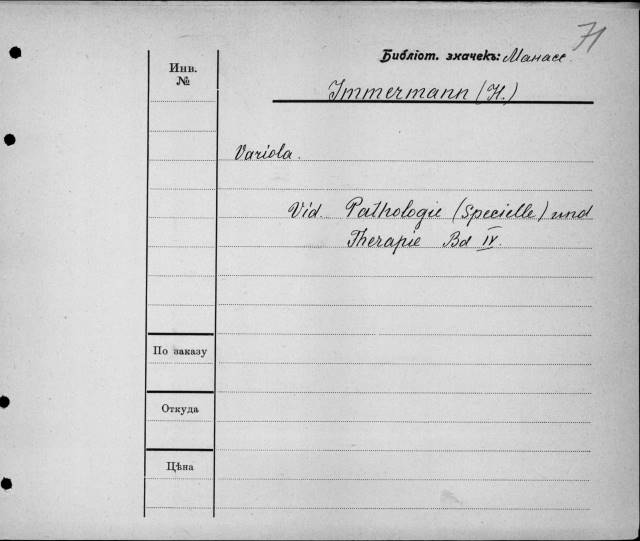 71
Библіот. значекъ: Манасс
Инв.
№
Immermann (H.)
Variola.
Vid. Pathologie (Specielle) und
Therapie Bd IV.
По заказу
Откуда
Цѣна